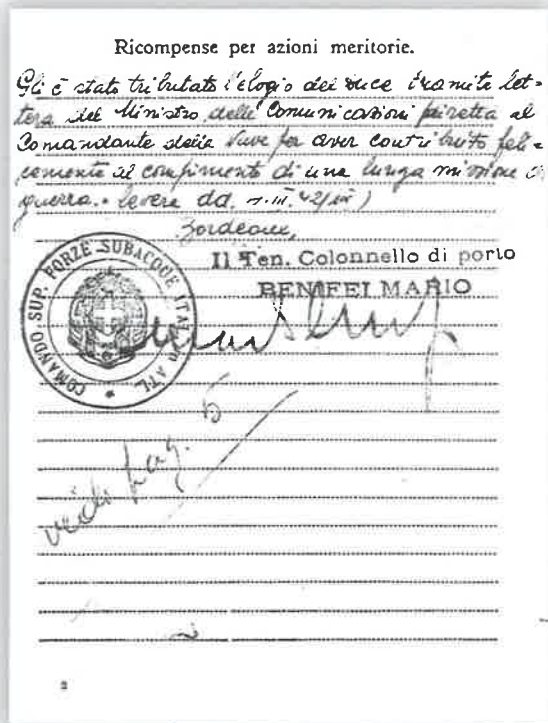 Ricompense per azioni meritorie.
Gli è stato tributato l'elogio del Duce tramite let=
tera del Ministro delle Comunicazioni diretta al
Comandante della Nave per aver contribuito feli=
cemente al compimento di una lunga missione di
guerra.
Bordeaux,
Il Ten. Colonnello di porto
BENIFEI MARIO
COMANDO SUP. FORZE SUBACQUE ITAL. IN ATL.
vedi pag. 5